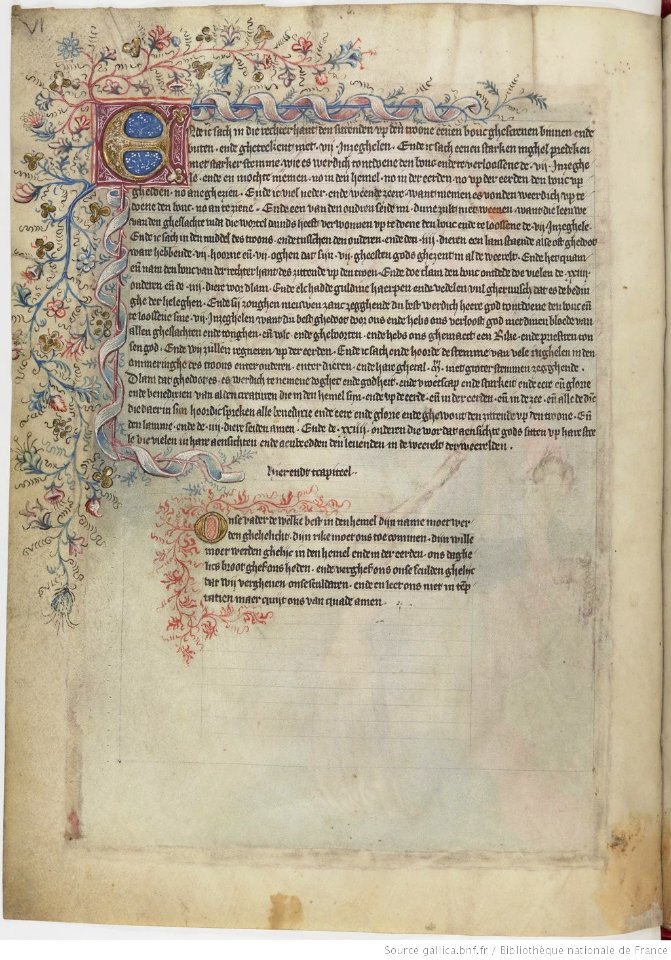 VI
Nde ic sach in die rechter hant des sittenden vp den troone eenen bouc ghescreuen binnen · ende
buten · ende gheteekent met · vij · Inzeghelen · Ende ic sach eenen starken inghel predeken
met starker stemme · wie es werdich tontdoene den bouc ende te verloossene de · vij · Inzeghe
le · ende en mochte niemen · no in den hemel · no in der eerden · no vp der eerden den bouc vp
ghedoen · no aneghezien · Ende ic viel neder · ende weende zeere · want niemen es vonden werdich vp te
doene den bouc · no an te ziene · Ende een van den ouderen seide mi · dune zult niet weenen · want die leeuwe
van den gheslachte iuda die wortel dauids heeft verwonnen vp te doene den bouc ende te loossene de · vij · Inzeghele ·
Ende ic sach in den middel des troons · ende tusschen den ouderen · ende den · iiij · dieren een lam staende als oft ghedoot
ware hebbende · vij · hoorne en̄ · vij · oghen dat sijn · vij · gheesten gods ghezent in al de weerelt · Ende het quam
en̄ nam den bouc van der rechter hant des zittende vp den troen · Ende doe tlam den bouc ontdede doe vielen de · xxiiij ·
ouderen en̄ de · iiij · diere vor dlam · Ende elc hadde guldine haerpen ende vedelen vul gherieusch dat es de bedin
ghe der heleghen · Ende sij zonghen nieuwen zanc zegghende du best werdich heere god tontdoene den bouc en̄
te loossene sine · vij · Inzeghelen want du best ghedoot door ons ende hebs ons verloost god met dinen bloede van
allen gheslachten ende tonghen · en̄ volc · ende gheboorten · ende hebs ons ghemaect een Rike · ende priesteren con
sen god · Ende wij zullen regneren vp der eerden · Ende ic sach · ende hoorde de stemme van vele inghelen in den
ommeringhe des troons ende ouderen · ende dieren · ende hare ghetal · met groter stemmen zegghende ·
Dlam dat ghedoot es · es werdich te nemene doghet ende godheit · ende wijsheit ende starkeit · ende eere en̄ glorie
ende benedixien van al den creaturen die in den hemel sijn · ende vp de eerde · en̄ in der eerden · en̄ in de zee · en̄ alle de din
die daer in sijn hoordic spreken alle benedixie ende eere ende glorie ende ghewout den zittende vp den troone · En̄
den lamme · ende de · iiij · diere seiden amen · Ende de · xxiiij · ouderen die vor dat aensichte gods saten vp hare stoe
le die vielen in hare aensichten · ende anebeedden den leuenden in de weerelt der weerelden ·
vierendt capiteel ·
Onse vader de welke best in den hemel dijn name moet wer
den ghehelicht · dijn rike moet ons toe commen · dijn wille
moet werden ghelije in den hemel ende in der eerden · ons daghe
lics broot ghef ons heden · ende verghef ons onse sculden ghelijc
dat wij vergheuen onse sculdaren · ende en lect ons niet in tēp
tatien maer quijt ons van quade amen ·
Source gallica.bnf.fr / Bibliothèque nationale de France